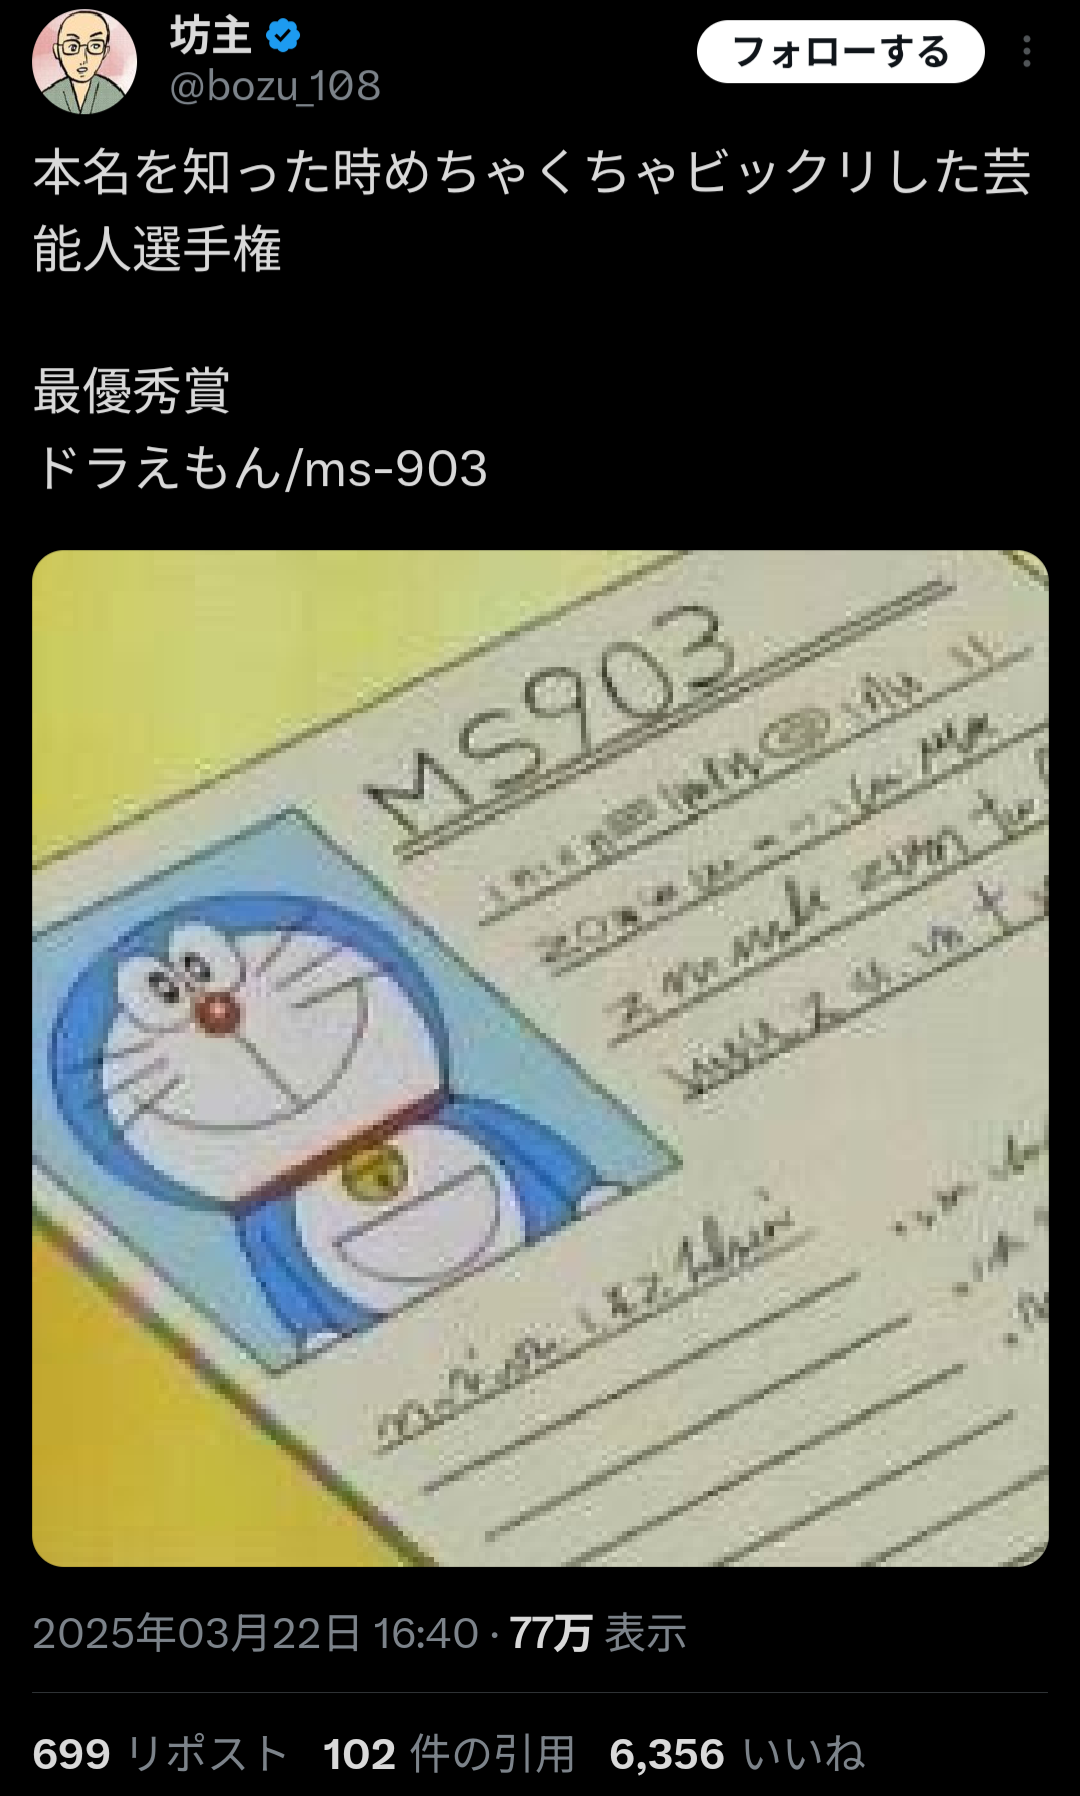 坊主
@bozu_108
フォローする
本名を知った時めちゃくちゃビックリした芸
能人選手権
最優秀賞
ドラえもん/ms-903
MS903
2025年03月22日 16:40 · 77万 表示
699 リポスト 102 件の引用 6,356 いいね